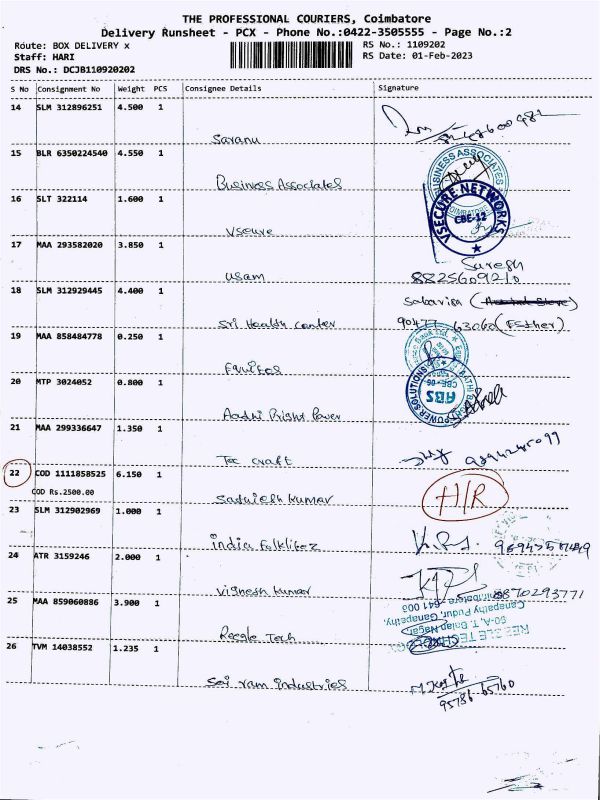 THE PROFESSIONAL COURIERS, Coimbatore
Delivery Runsheet - PCX - Phone No.:0422-3505555 - Page No.:2
Route: BOX DELIVERY x
RS No.: 1109202
Staff: HARI
RS Date: 01-Feb-2023
DRS No.: DCJB110920202
S No Consignment No Weight PCS Consignee Details Signature
14 SLM 312896251 4.500 1
Saranu
15 BLR 6350224540 4.550 1
Business Associates
BUSINESS ASSOCIATES
16 SLT 322114 1.600 1
VSECURE NETWORKS
COIMBATORE
CBE-12
Vseure
17 MAA 293582020 3.850 1
Suresh
usam 8825609210
18 SLM 312929445 4.400 1
Sri Health center 90477 63060 (Esther)
19 MAA 858484778 0.250 1
20 MTP 3024052 0.800 1
POWER SOLUTIONS
ABS
CBE-06
Aadhi Bright Power
21 MAA 299336647 1.350 1
Tec craft
22 COD 1111858525 6.150 1
COD Rs.2500.00
H/R
Sathish kumar
23 SLM 312902969 1.000 1
india Folklifez
24 ATR 3159246 2.000 1
Vignesh kumar 8870293771
25 MAA 859060886 3.900 1
Coimbatore - 641 006
Ganapathy Pudur, Ganapathy,
50-A, T. Balaji Nagar,
Reegle Tech
26 TVM 14038552 1.235 1
Sai ram industries
95786 65760